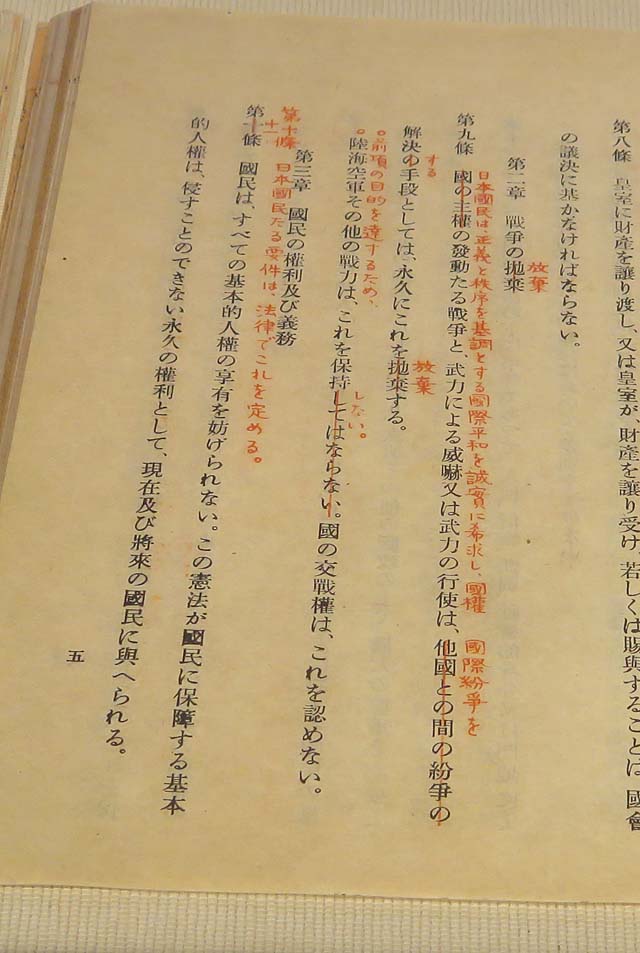 第八條　皇室に財産を讓り渡し、又は皇室が、財産を讓り受け、若しくは賜與することは、國會
の議決に基かなければならない。
放棄
第二章　戰爭の抛棄
日本國民は、正義と秩序を基調とする國際平和を誠實に希求し、國權　國際紛爭を
第九條　國の主權の發動たる戰爭と、武力による威嚇又は武力の行使は、他國との間の紛爭の
する　放棄
解決の手段としては、永久にこれを抛棄する。
前項の目的を達するため、　しない。
陸海空軍その他の戰力は、これを保持してはならない。國の交戰權は、これを認めない。
第三章　國民の權利及び義務
第十條　日本國民たる要件は、法律でこれを定める。
十一
第十條　國民は、すべての基本的人權の享有を妨げられない。この憲法が國民に保障する基本
的人權は、侵すことのできない永久の權利として、現在及び將來の國民に與へられる。
五